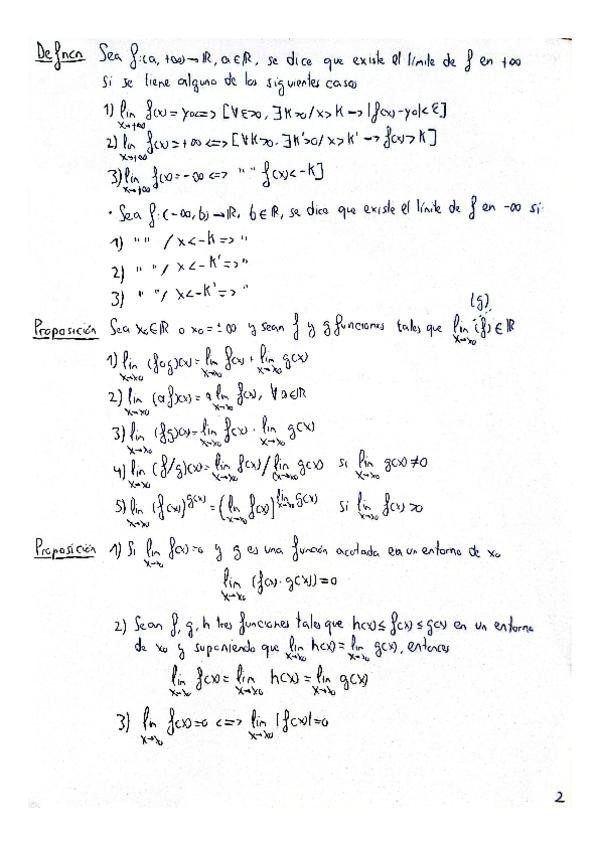 Defncn Sea f:(a, +∞)→ℝ, a∈ℝ, se dice que existe el límite de f en +∞
si se tiene alguno de los siguientes casos
1) lim x→+∞ f(x)=y₀<=>[∀ε>0, ∃K>0/x>K→|f(x)-y₀|<ε]
2) lim x→+∞ f(x)=+∞<=>[∀K>0, ∃K'>0/x>K'→f(x)>K]
3) lim x→+∞ f(x)=-∞<=> " " f(x)<-K]
· Sea f:(-∞,b)→ℝ, b∈ℝ, se dice que existe el límite de f en -∞ si:
1) " " / x<-K=> "
2) " " / x<-K'=> "
3) " " / x<-K'=> "
(g)
Proposición Sea x₀∈ℝ o x₀=±∞ y sean f y g funciones tales que lim x→x₀ (f)∈ℝ
1) lim x→x₀ (f+g)(x)=lim x→x₀ f(x)+lim x→x₀ g(x)
2) lim x→x₀ (af)(x)=a lim x→x₀ f(x), ∀a∈ℝ
3) lim x→x₀ (fg)(x)=lim x→x₀ f(x)·lim x→x₀ g(x)
4) lim x→x₀ (f/g)(x)=lim x→x₀ f(x)/lim x→x₀ g(x) si lim x→x₀ g(x)≠0
5) lim x→x₀ (f(x))^g(x)=(lim x→x₀ f(x))^lim x→x₀ g(x) si lim x→x₀ f(x)>0
Proposición 1) Si lim x→x₀ f(x)=0 y g es una función acotada en un entorno de x₀
lim x→x₀ (f(x)·g(x))=0
2) Sean f, g, h tres funciones tales que h(x)≤f(x)≤g(x) en un entorno
de x₀ y suponiendo que lim x→x₀ h(x)=lim x→x₀ g(x), entonces
lim x→x₀ f(x)=lim x→x₀ h(x)=lim x→x₀ g(x)
3) lim x→x₀ f(x)=0 <=> lim x→x₀ |f(x)|=0
2